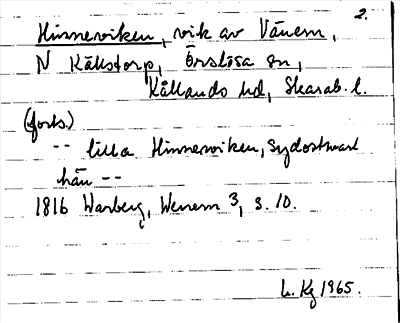 2.
Hinneviken, vik av Vänern,
N Källstorp, Örslösa sn,
Kållands hd, Skarab. l.
(forts.)
-- lilla Hinneviken, sydostward
hän --
1816 Warberg, Wenern 3, s. 10.
L. Kg 1965.